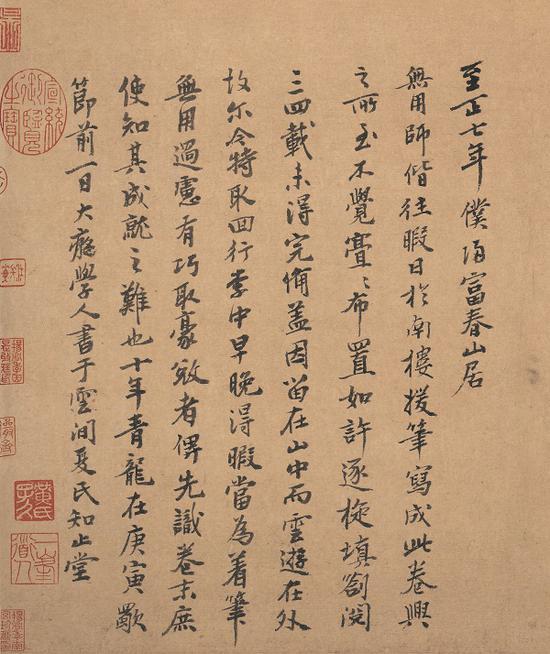 至正七年僕歸富春山居
無用師偕往暇日於南樓援筆寫成此卷興
之所至不覺亹亹布置如許逐旋填劄閱
三四載未得完備蓋因留在山中而雲遊在外
故尔今特取回行李中早晚得暇當為着筆
無用過慮有巧取豪敚者俾先識卷末庶
使知其成就之難也十年青龍在庚寅歜
節前一日大癡學人書于雲間夏氏知止堂
懋勤御覽之寶
黃氏子久
一峯道人